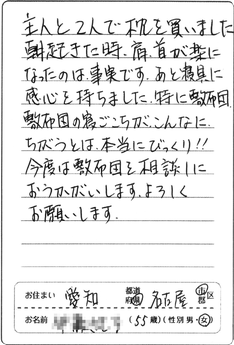 主人と2人で枕を買いました
朝起きた時、肩、首が楽に
なったのは事実です。あと寝具に
感心を持ちました。特に敷布団、
敷布団の寝ごこちが、こんなに、
ちがうとは、本当にびっくり!!
今度は敷布団を相談しに
おうかがいします。よろしく
お願いします。
お住まい 愛知 都道府県 名古屋 市区郡
お名前 (55歳)(性別 男・女)